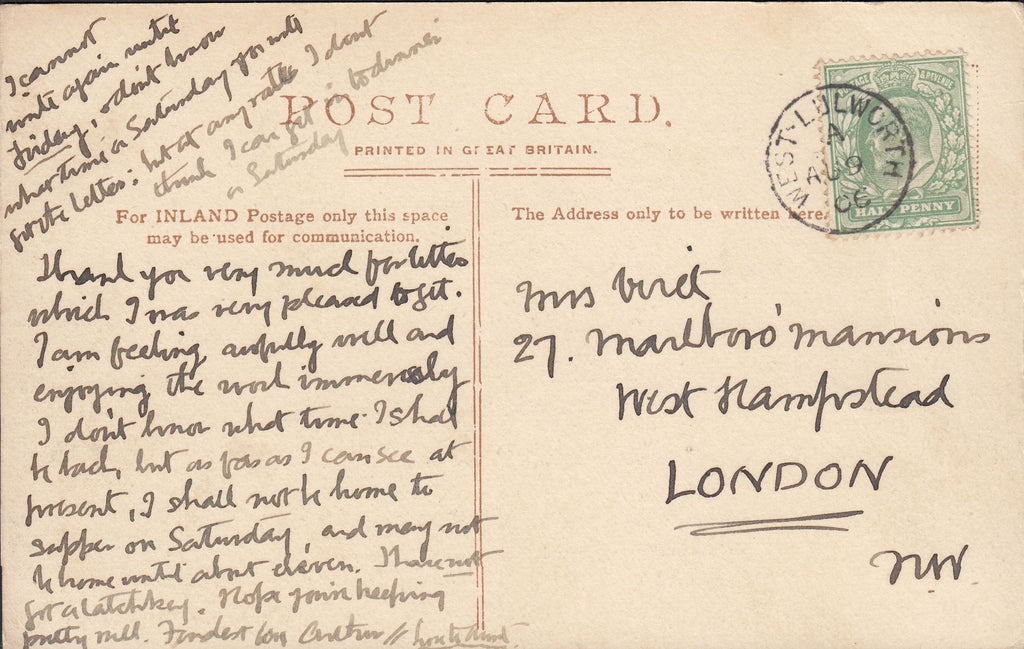 I cannot
write again until
Friday, & don't know
what time on Saturday you will
get the letter: but at any rate I don't
think I can get in to dinner
on Saturday
POST CARD.
PRINTED IN GREAT BRITAIN.
For INLAND Postage only this space
may be used for communication.
The Address only to be written here.
POSTAGE & REVENUE
HALF PENNY
WEST-LULWORTH
A
AU 9
06
Thank you very much for letter
which I was very pleased to get.
I am feeling awfully well and
enjoying the work immensely
I don't know what time I shall
be back, but as far as I can see at
present, I shall not be home to
supper on Saturday, and may not
be home until about eleven. I have not
got a latchkey. Hope you're keeping
pretty well. Fondest love Arthur //
Mrs Viret
27. Marlboro' Mansions
West Hampstead
LONDON
NW.